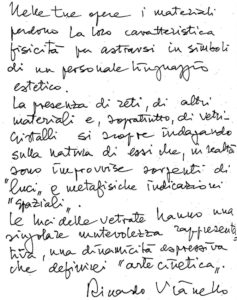 Nelle tue opere i materiali
perdono la loro caratteristica
fisicità per astrarsi in simboli
di un personale linguaggio
estetico.
La presenza di reti, di altri
materiali e, soprattutto, di vetri-
cristalli si scopre indagando
sulla natura di essi che, in realtà
sono improvvise sorgenti di
"luci" e metafisiche indicazioni
"spaziali".
Le luci delle vetrate hanno una
singolare mutevolezza rappresenta
tiva, una dinamicità espressiva
che definirei "arte cinetica".
Ricardo Vianello